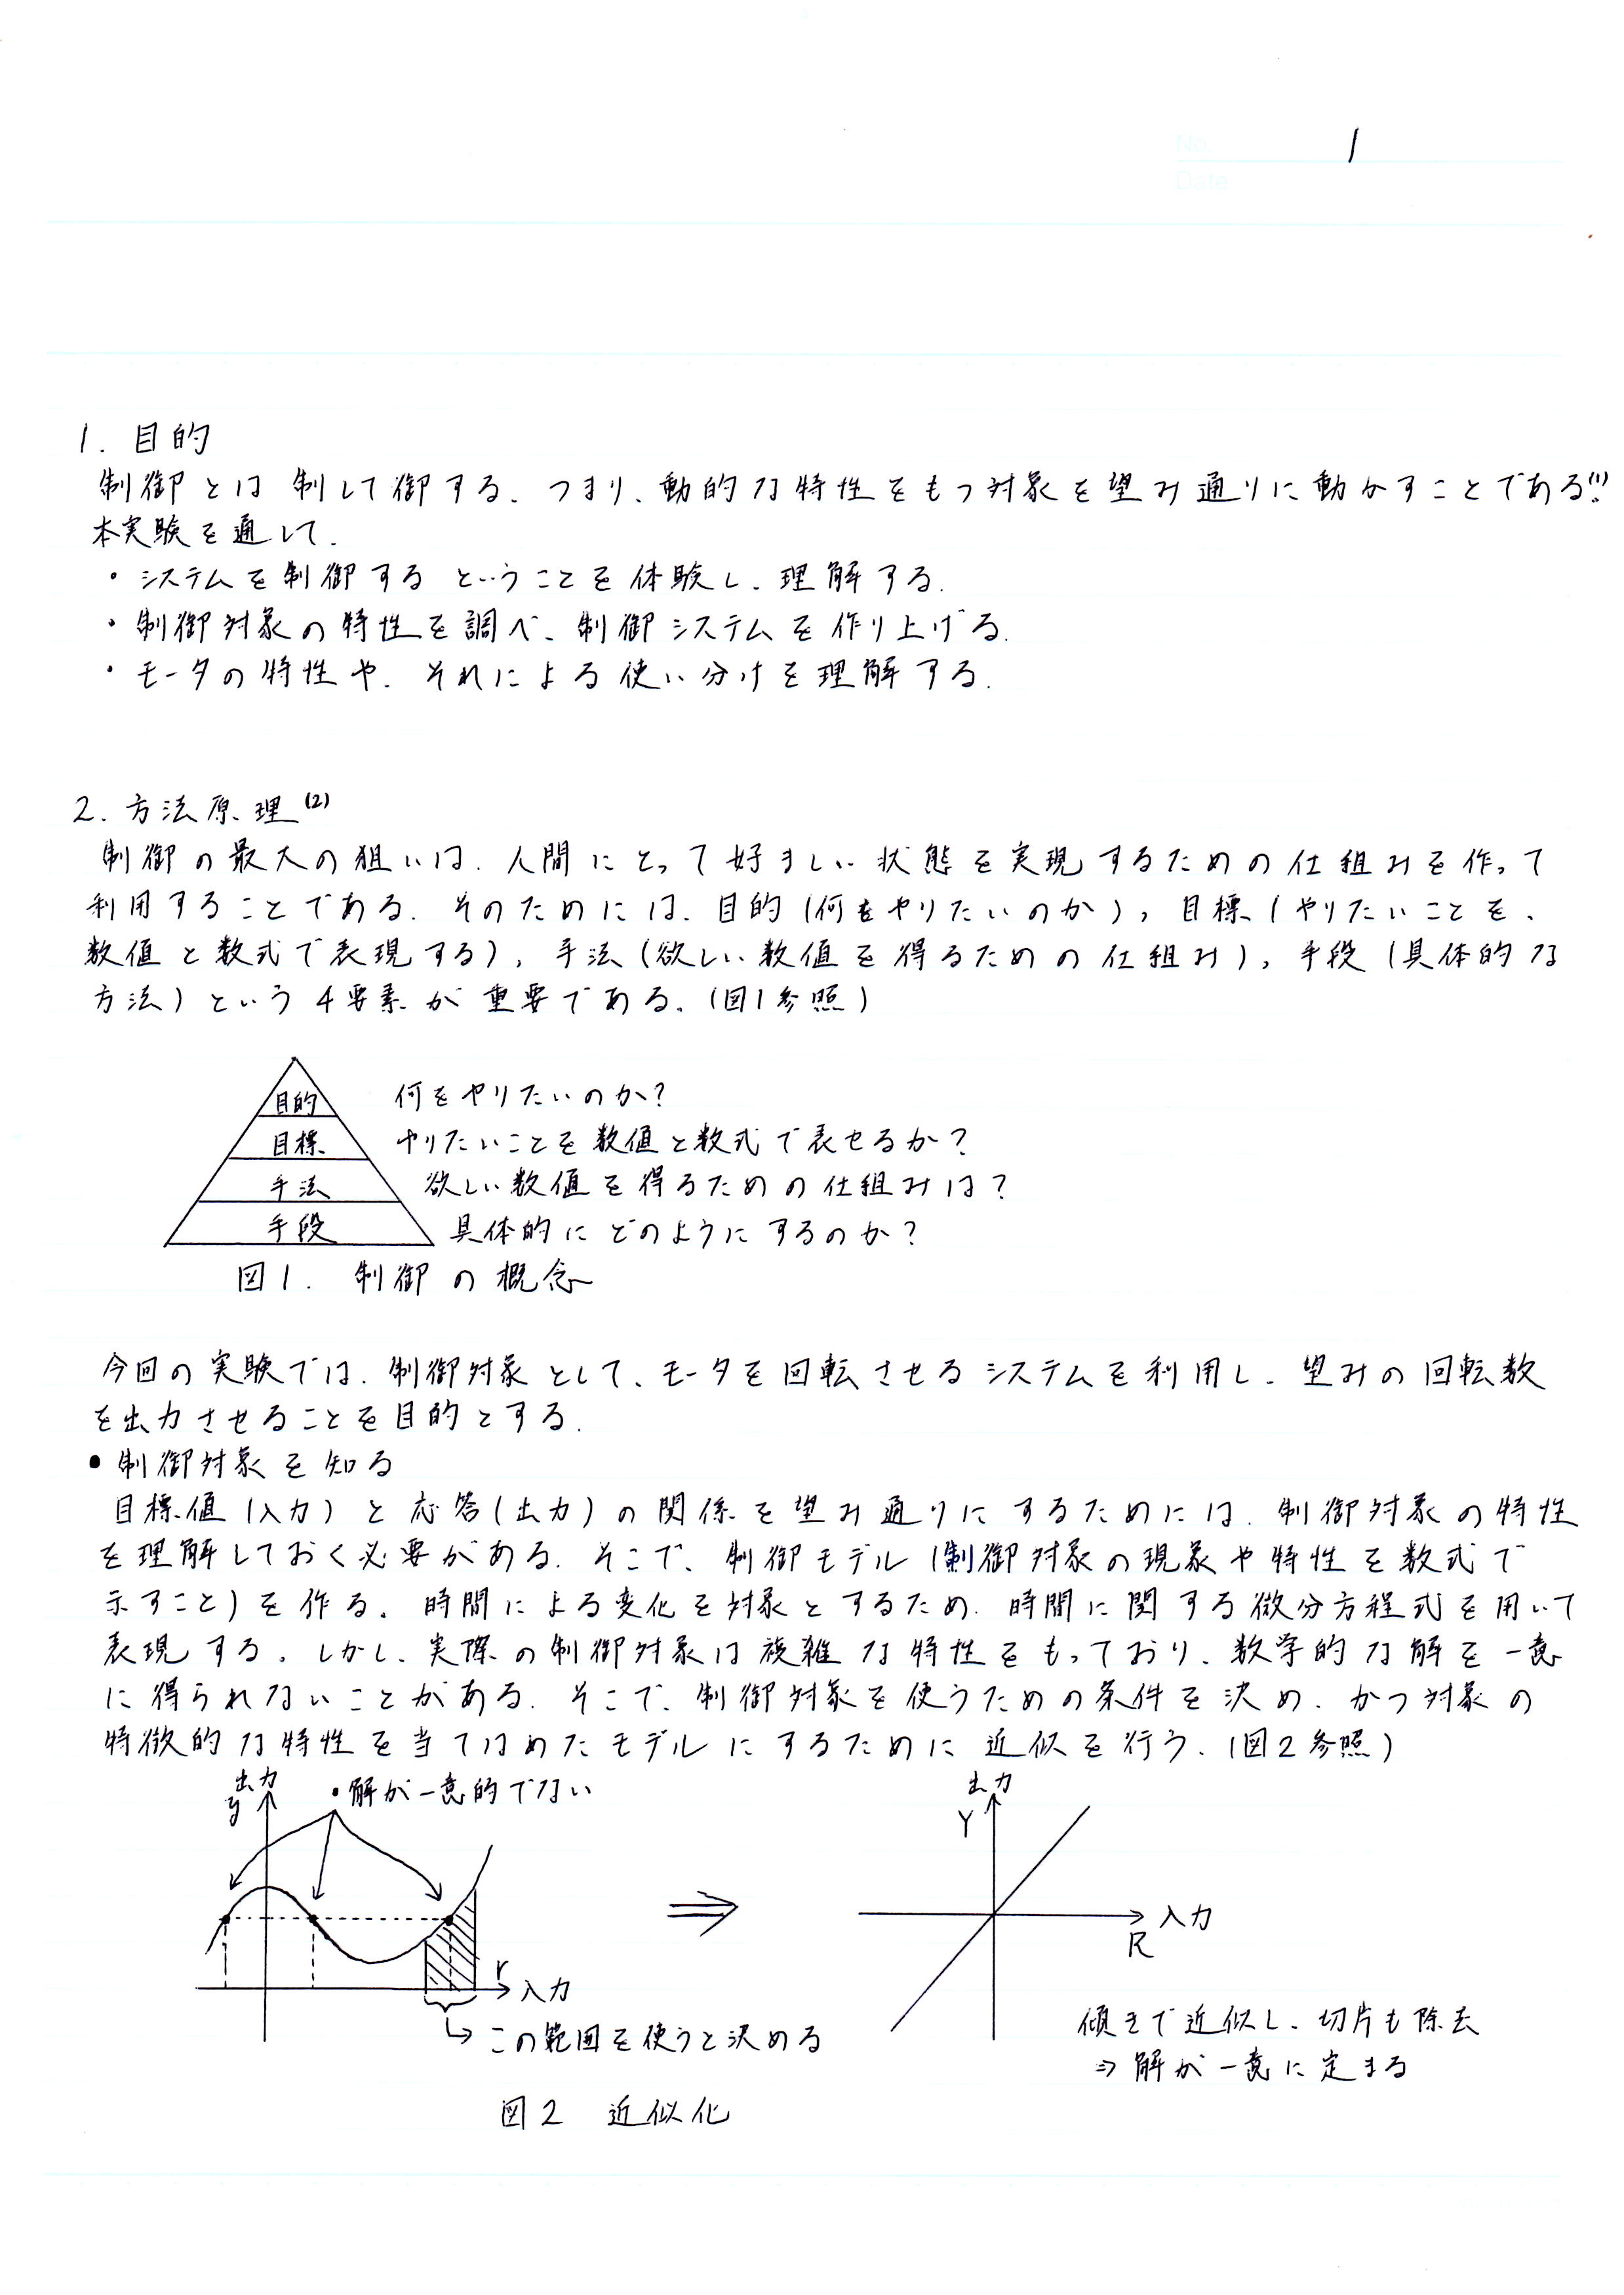 No. 1
Date
1. 目的
制御とは制して御する、つまり、動的な特性をもつ対象を望み通りに動かすことである(1)。
本実験を通して、
・システムを制御するということを体験し、理解する。
・制御対象の特性を調べ、制御システムを作り上げる。
・モータの特性や、それによる使い分けを理解する。
2. 方法原理(2)
制御の最大の狙いは、人間にとって好ましい状態を実現するための仕組みを作って
利用することである。そのためには、目的(何をやりたいのか), 目標(やりたいことを、
数値と数式で表現する), 手法(欲しい数値を得るための仕組み), 手段(具体的な
方法)という4要素が重要である。(図1参照)
目的 何をやりたいのか?
目標 やりたいことを数値と数式で表せるか?
手法 欲しい数値を得るための仕組みは?
手段 具体的にどのようにするのか?
図1. 制御の概念
今回の実験では、制御対象として、モータを回転させるシステムを利用し、望みの回転数
を出力させることを目的とする。
・制御対象を知る
目標値(入力)と応答(出力)の関係を望み通りにするためには、制御対象の特性
を理解しておく必要がある。そこで、制御モデル(制御対象の現象や特性を数式で
示すこと)を作る。時間による変化を対象とするため、時間に関する微分方程式を用いて
表現する。しかし、実際の制御対象は複雑な特性をもっており、数学的な解を一意
に得られないことがある。そこで、制御対象を使うための条件を決め、かつ対象の
特徴的な特性を当てはめたモデルにするために近似を行う。(図2参照)
出力
y
・解が一意的でない
r
入力
この範囲を使うと決める
⇒
出力
Y
入力
R
傾きで近似し、切片も除去
⇒解が一意に定まる
図2 近似化